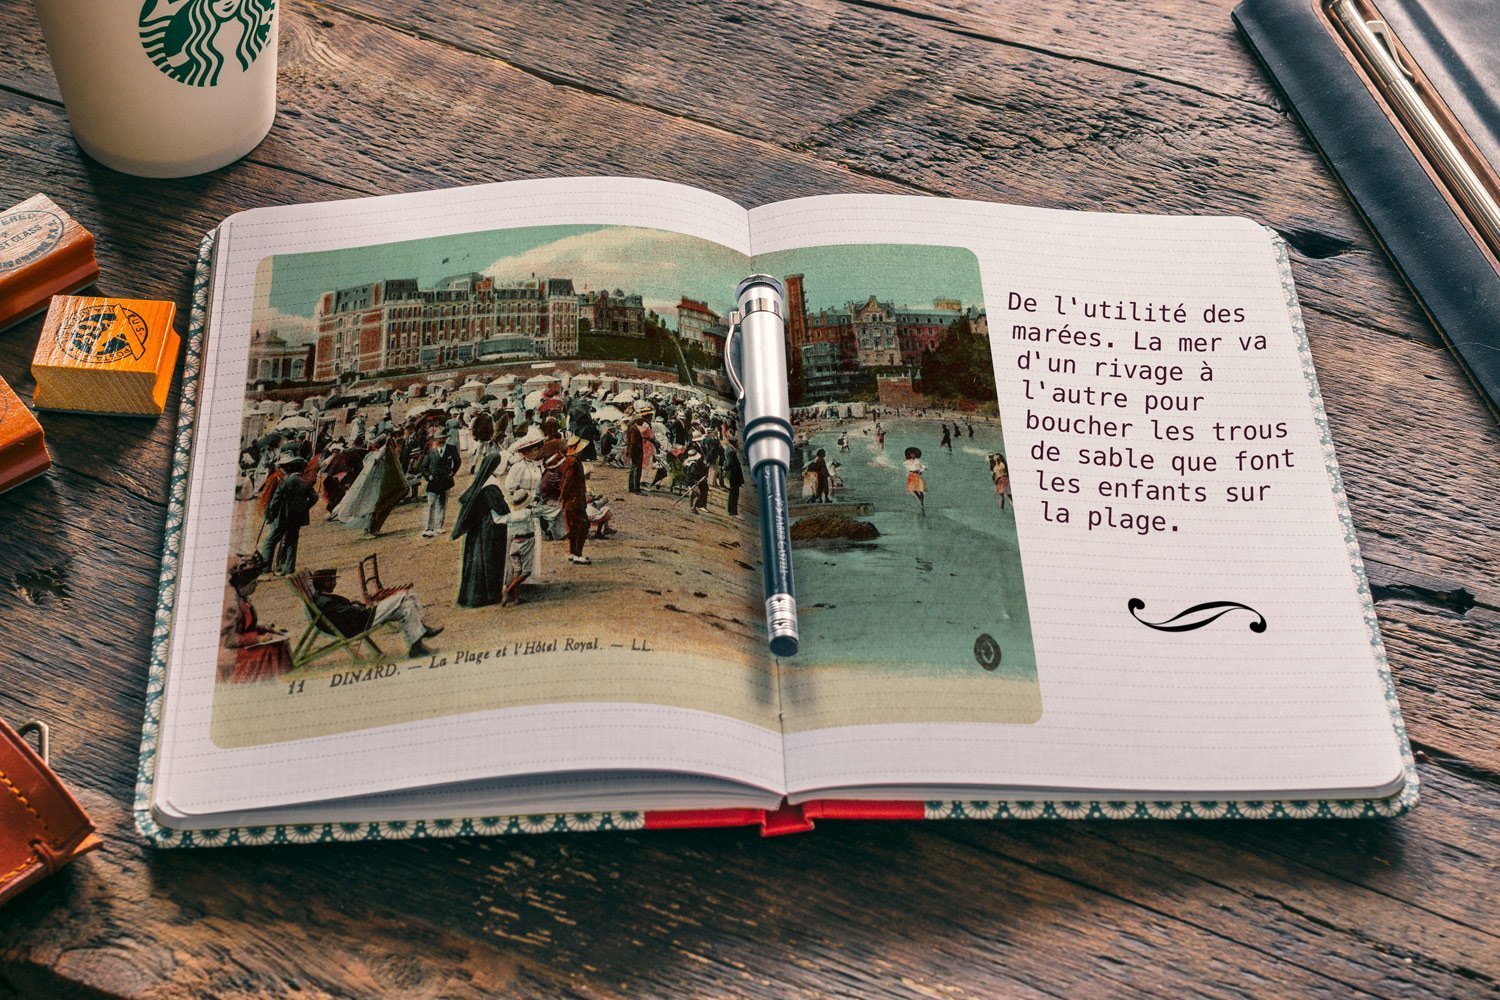 De l'utilité des
marées. La mer va
d'un rivage à
l'autre pour
boucher les trous
de sable que font
les enfants sur
la plage.
11 DINARD. — La Plage et l'Hôtel Royal. — LL.